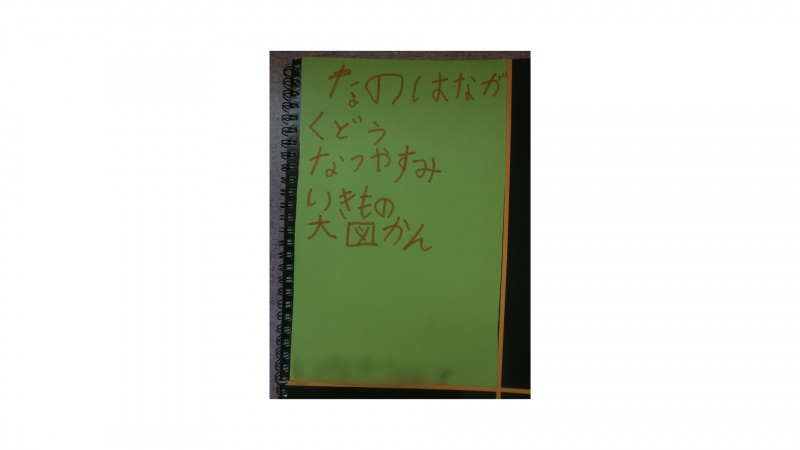 なのはなが
くどう
なつやすみ
いきもの
大図かん